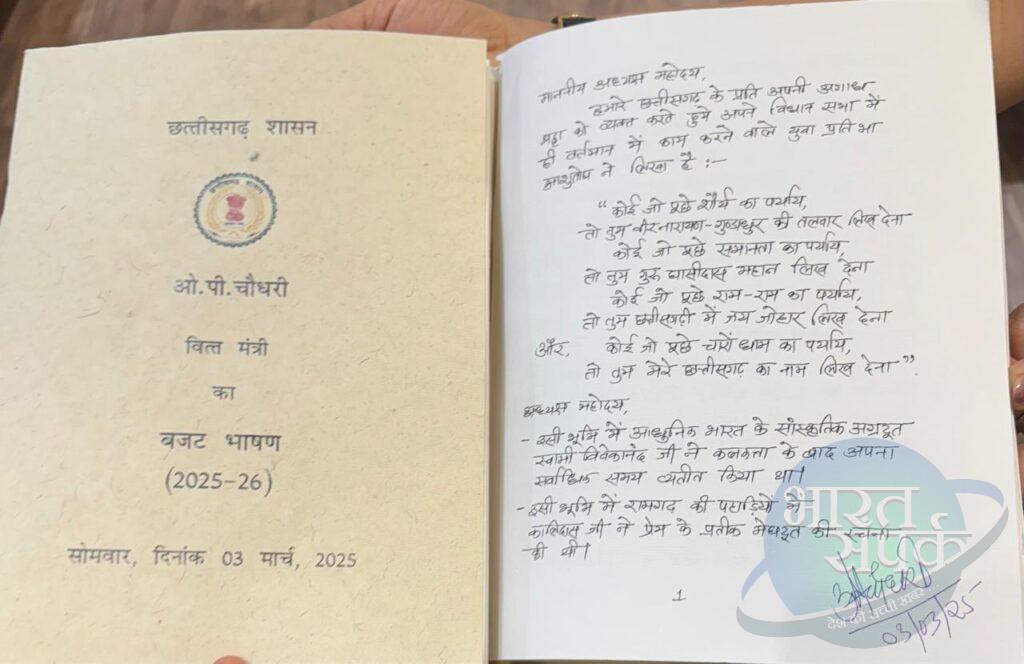 छत्तीसगढ़ शासन
ओ.पी.चौधरी
वित्त मंत्री
का
बजट भाषण
(2025-26)
सोमवार, दिनांक 03 मार्च, 2025
माननीय अध्यक्ष महोदय,
हमारे छत्तीसगढ़ के प्रति अपनी अगाध
श्रद्धा को व्यक्त करते हुये अपने विधान सभा में
ही वर्तमान में काम करने वाले युवा प्रतिभा
आशुतोष ने लिखा है :—
“कोई जो पूछे शौर्य का पर्याय,
तो तुम वीरनारायण-गुण्डाधुर की तलवार लिख देना
कोई जो पूछे समानता का पर्याय,
तो तुम गुरू घासीदास महान लिख देना
कोई जो पूछे राम-राम का पर्याय,
तो तुम छत्तीसगढ़ी में जय जोहार लिख देना
और, कोई जो पूछे चारों धाम का पर्याय,
तो तुम मेरे छत्तीसगढ़ का नाम लिख देना”.
अध्यक्ष महोदय,
- इसी भूमि में आधुनिक भारत के सांस्कृतिक अग्रदूत
स्वामी विवेकानंद जी ने कलकत्ता के बाद अपना
सर्वाधिक समय व्यतीत किया था।
- इसी भूमि में रामगढ़ की पहाड़ियों में
कालिदास जी ने प्रेम के प्रतीक मेघदूत की रचना
की थी।
1
03/03/25
भारत
संपर्क
देश की सच्ची खबर